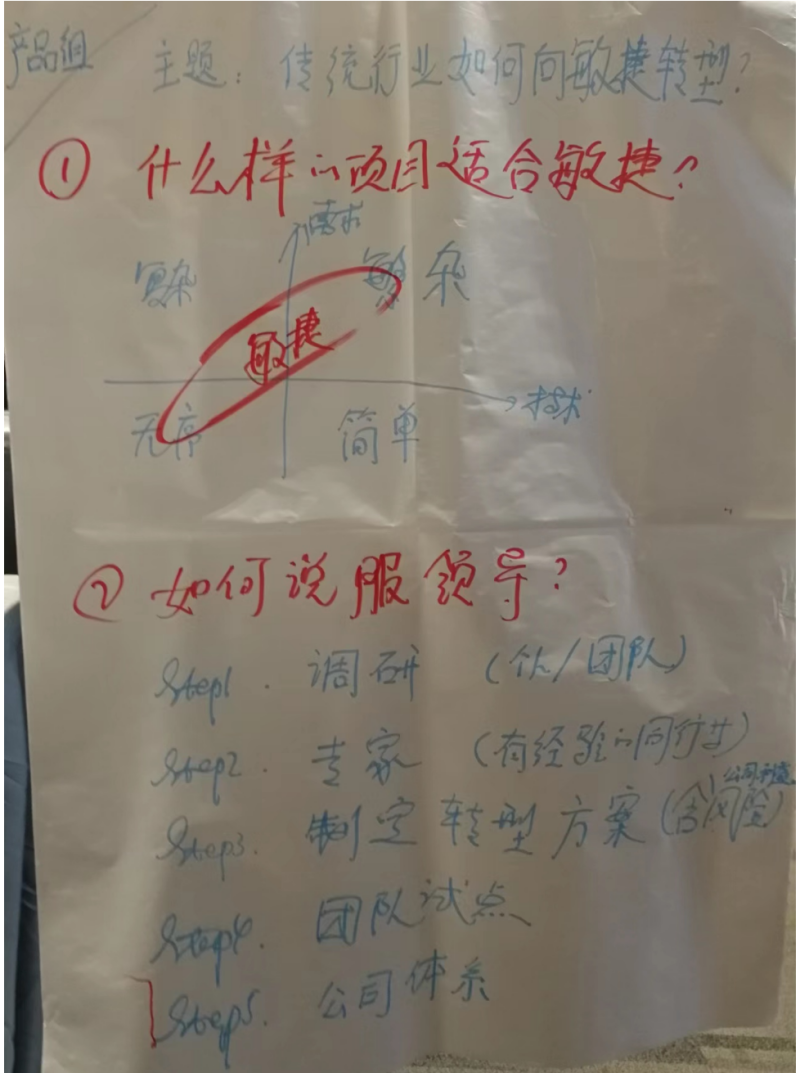 产品组
主题：传统行业如何向敏捷转型？
① 什么样的项目适合敏捷？
需求
复杂 繁杂
敏捷
技术
无序 简单
② 如何说服领导？
Step1. 调研 （个人/团队）
Step2. 专家 （有经验的同行业）
Step3. 制定转型方案（含风险）
Step4. 团队试点
Step5. 公司体系